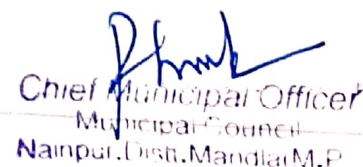 Chief Municipal Officer
Municipal Council
Nainpur.Distt.Mandla(M.P